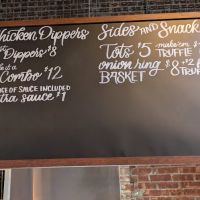 Chicken Dippers
Dippers $8
Combo $12
OF SAUCE INCLUDED
tra sauce $1
Sides AND Snack
Tots $5 make 'em
TRUFFLE
onion ring $8 +$2
BASKET TRUFF